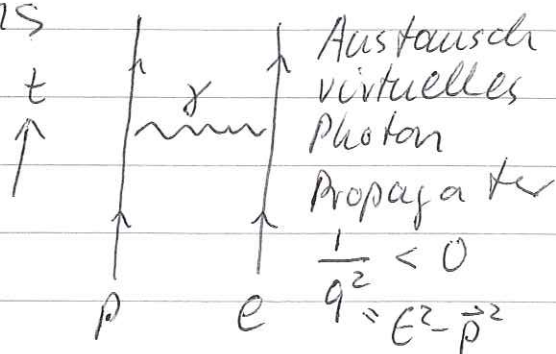 ns
Austausch
t
γ
virtuelles
Photon
Propagator
1/q² < 0
p e
= E² - p⃗²